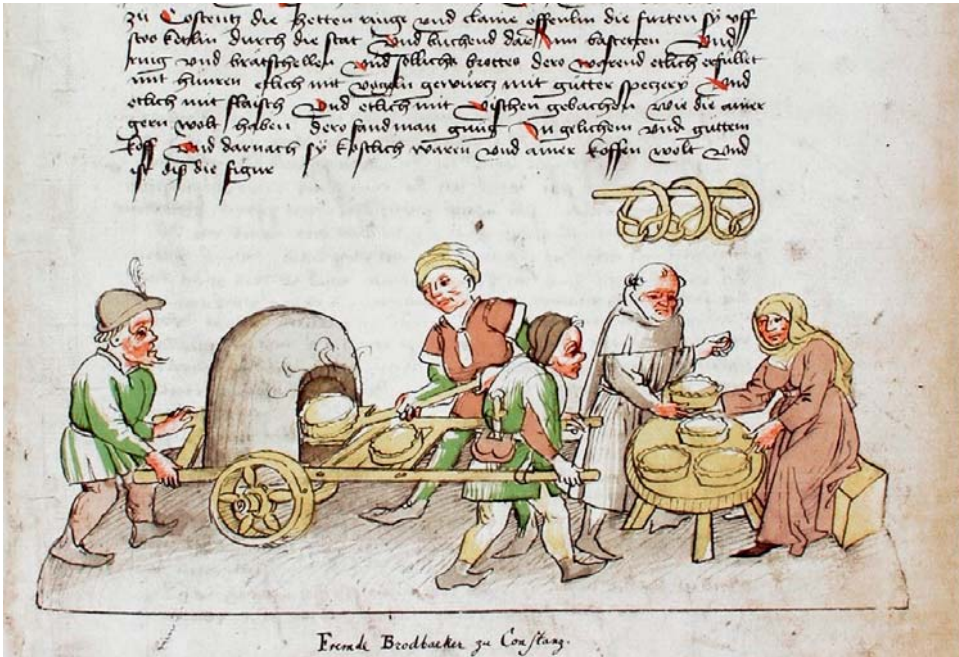 zü Costentz die hetten ringe vnd claine offenlin die fürten sy vff
stos kerlin durch die stat Vnd büchend dar Inn bastetten Vnd
ring vnd bratschellen Vnd sölichs brottes dero warend etlich erfüllet
mit hünren etlich mit voglen gewürtz mit gütter speczery Vnd
etlich mit flaisch Vnd etlich mit vischen gebachen wie die ainer
gern wolt haben dero fand man gnüg In gelichem vnd güttem
koff Vnd darnach sy kostlich waren vnd ainer koffen wolt Vnd
ist diß die figur
Fremde Brodbaeker zu Constanz.